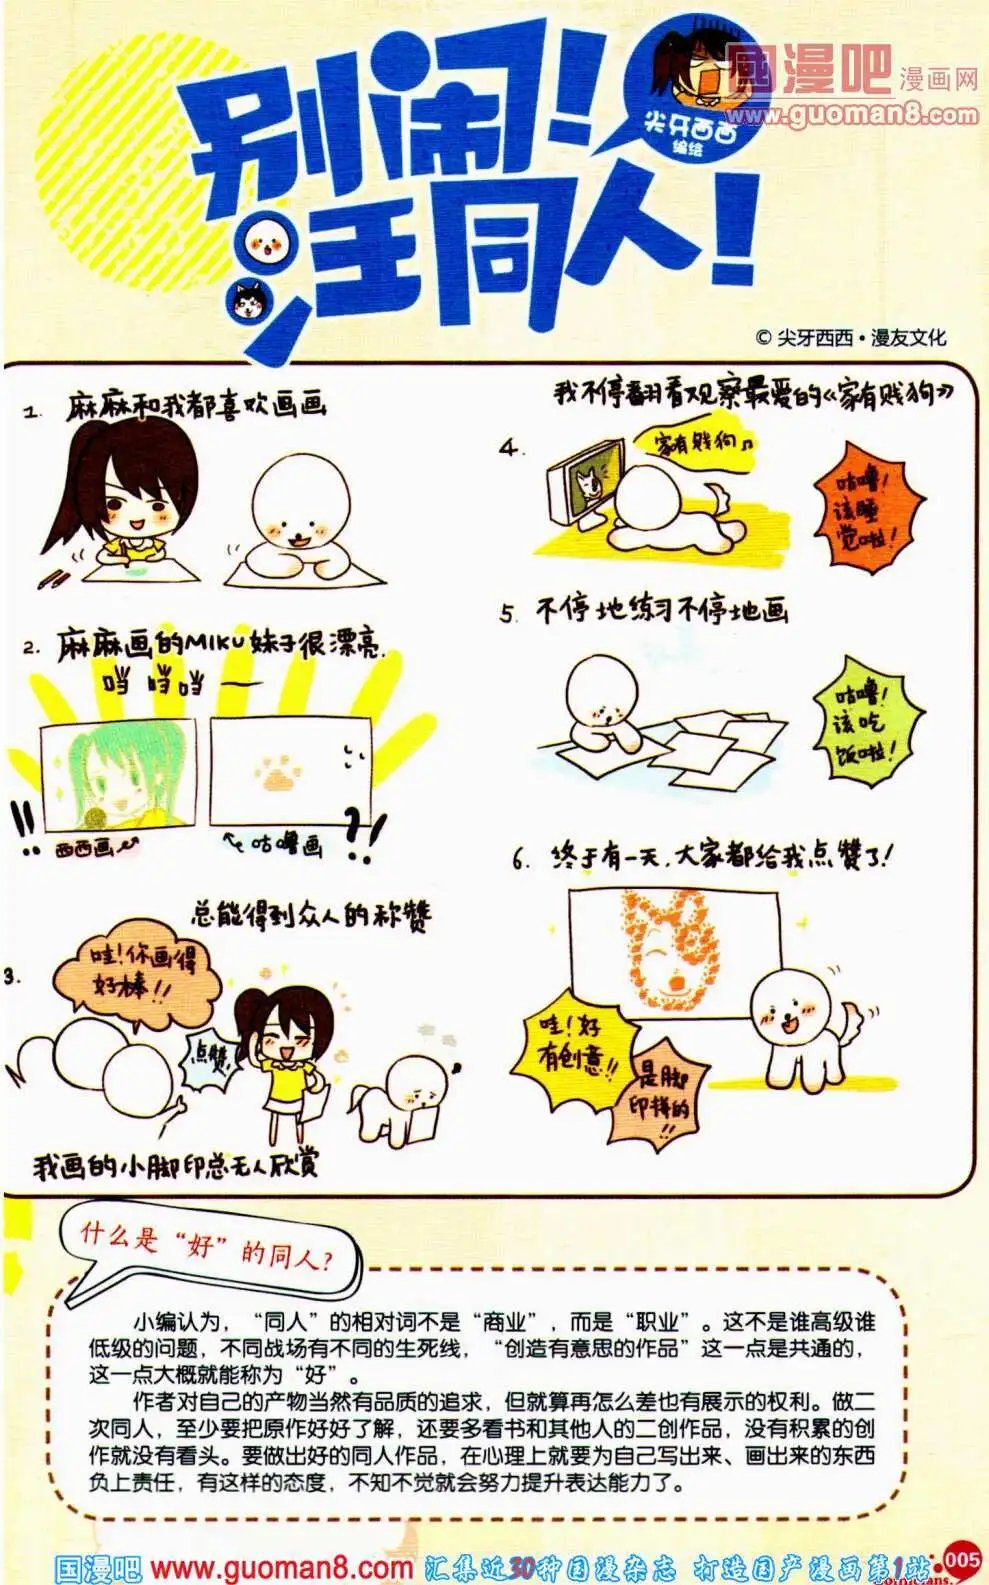 别闹！
汪同人！
尖牙西西
编绘
国漫吧 漫画网
www.guoman8.com
© 尖牙西西·漫友文化
1. 麻麻和我都喜欢画画
2. 麻麻画的MIKU妹子很漂亮.
当 当 当 —
!!
西西画
咕噜画
?!
总能得到众人的称赞
3.
哇!你画得
好棒!!
点赞!
我画的小脚印总无人欣赏
我不停翻看观察最爱的《家有贱狗》
4.
家有贱狗♫
咕噜!
该睡
觉啦!
5. 不停地练习不停地画
咕噜!
该吃
饭啦!
6. 终于有一天,大家都给我点赞了!
哇!好
有创意!!
是脚
印拼的!
什么是“好”的同人？
小编认为，“同人”的相对词不是“商业”，而是“职业”。这不是谁高级谁
低级的问题，不同战场有不同的生死线，“创造有意思的作品”这一点是共通的，
这一点大概就能称为“好”。
作者对自己的产物当然有品质的追求，但就算再怎么差也有展示的权利。做二
次同人，至少要把原作好好了解，还要多看书和其他人的二创作品，没有积累的创
作就没有看头。要做出好的同人作品，在心理上就要为自己写出来、画出来的东西
负上责任，有这样的态度，不知不觉就会努力提升表达能力了。
国漫吧 www.guoman8.com 汇集近30种国漫杂志 打造国产漫画第1站
005